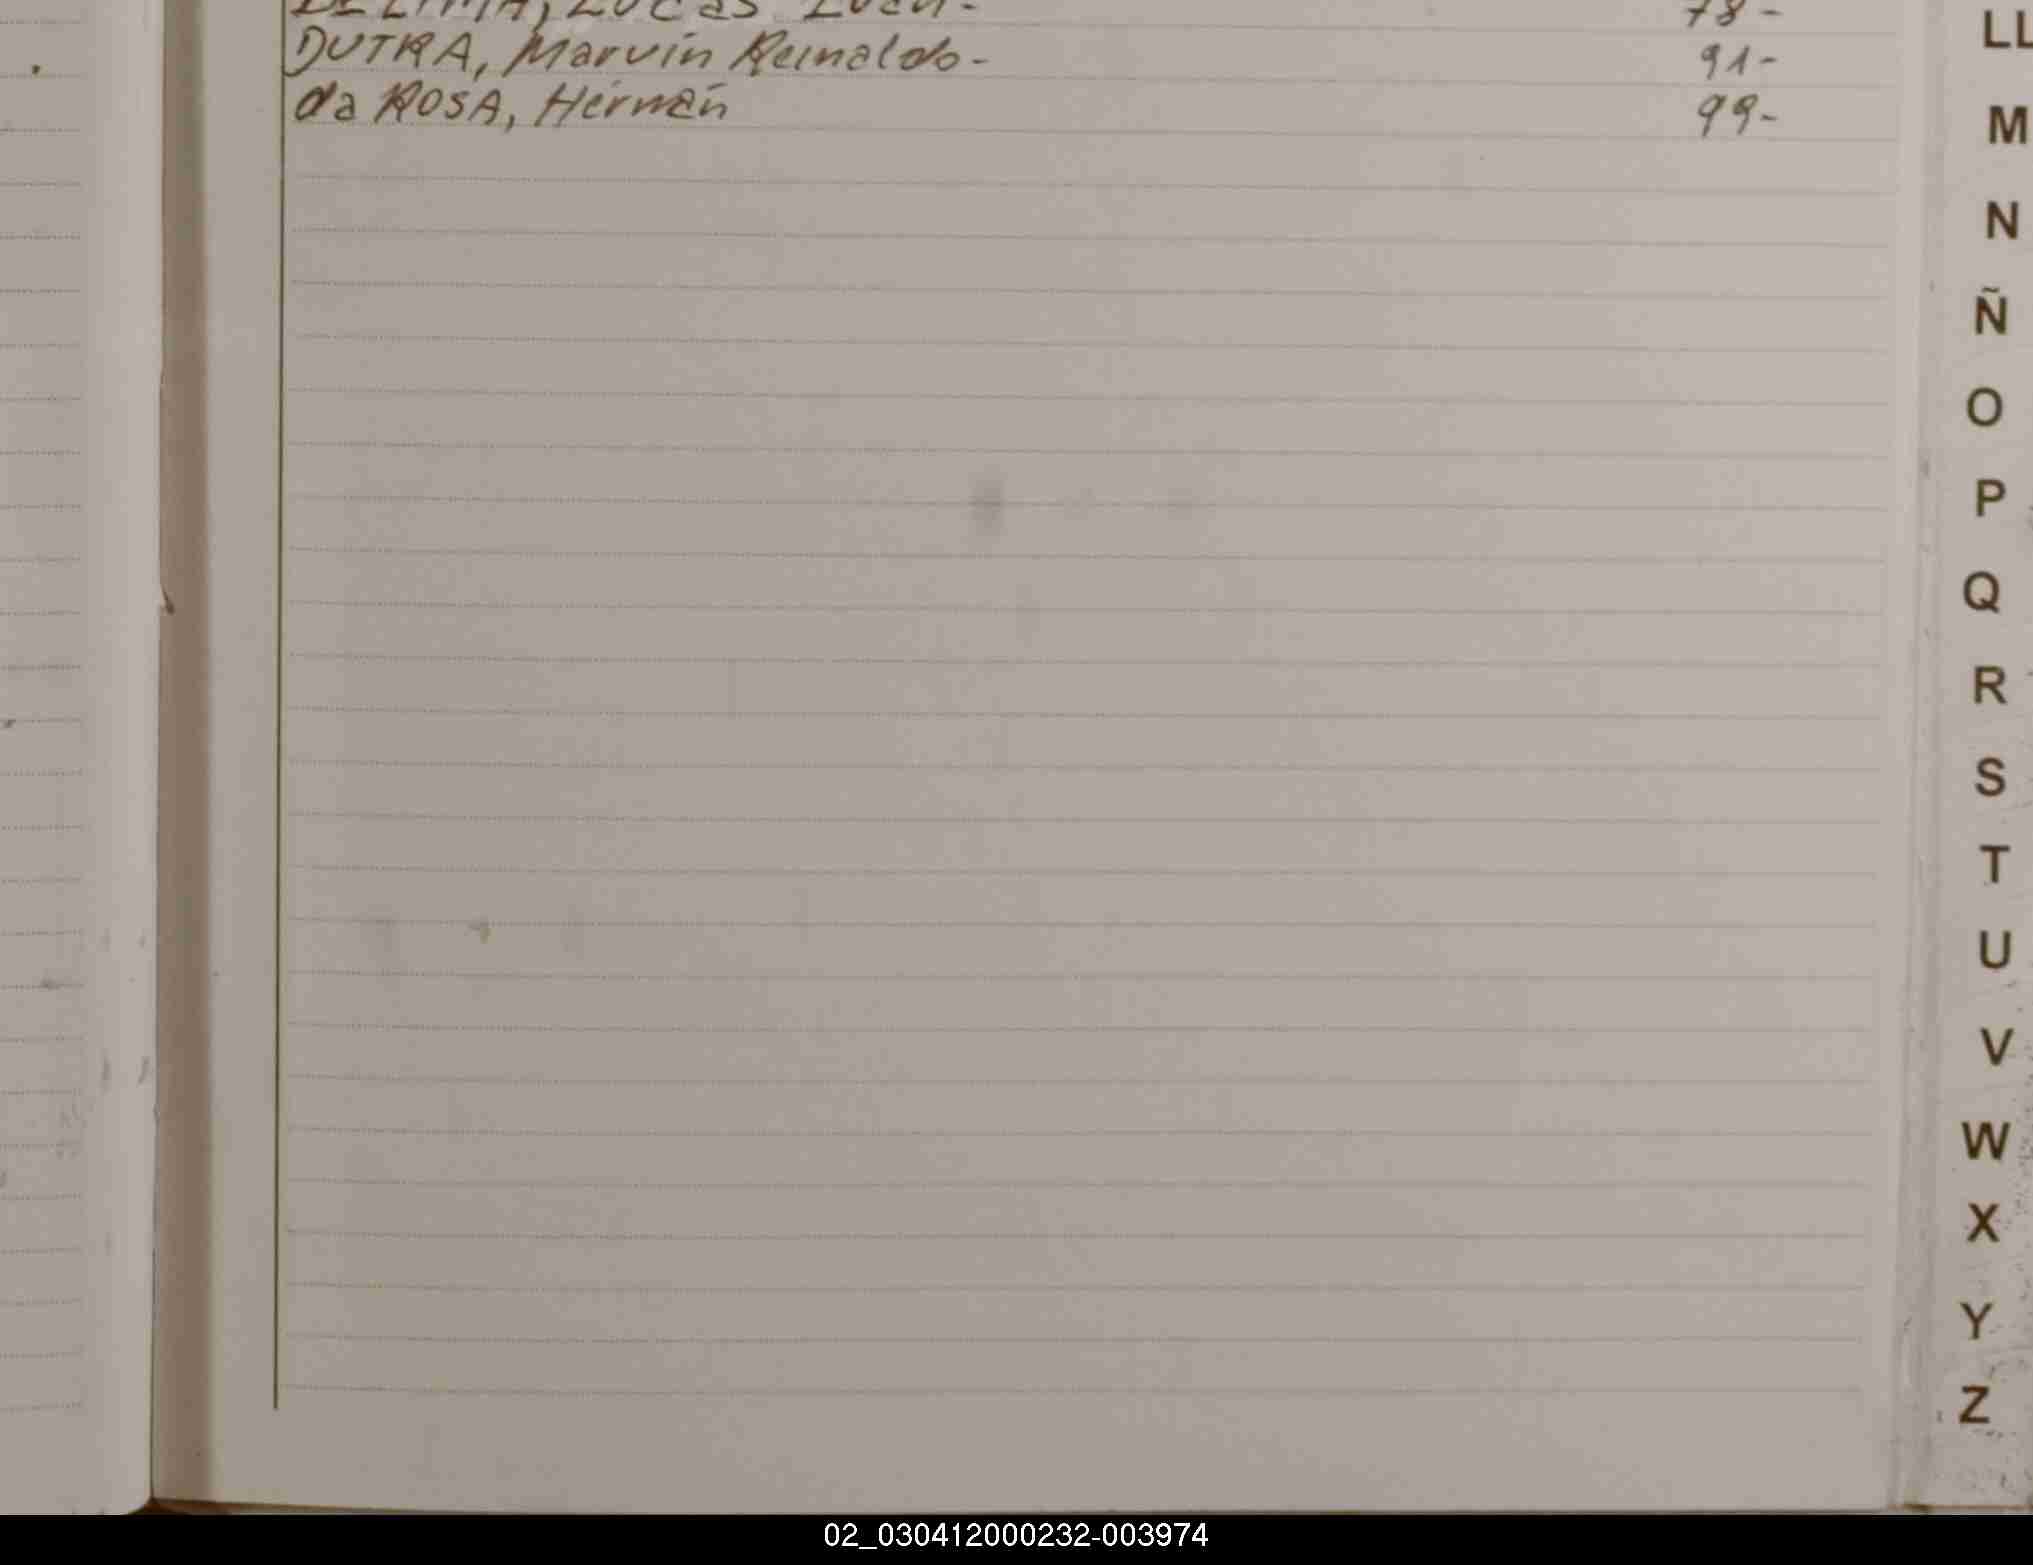 DE LIMA, Lucas Iván- 78-
DUTRA, Marvin Reinaldo- 91-
da ROSA, Hernán 99-
LL
M
N
Ñ
O
P
Q
R
S
T
U
V
W
X
Y
Z
02_030412000232-003974